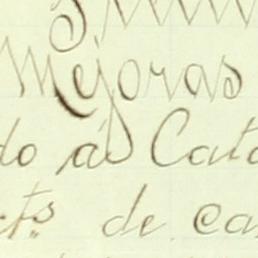 Mejoras
do á Cata
cts de ca